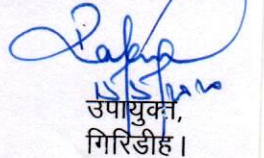 15/5/2020
उपायुक्त,
गिरिडीह।